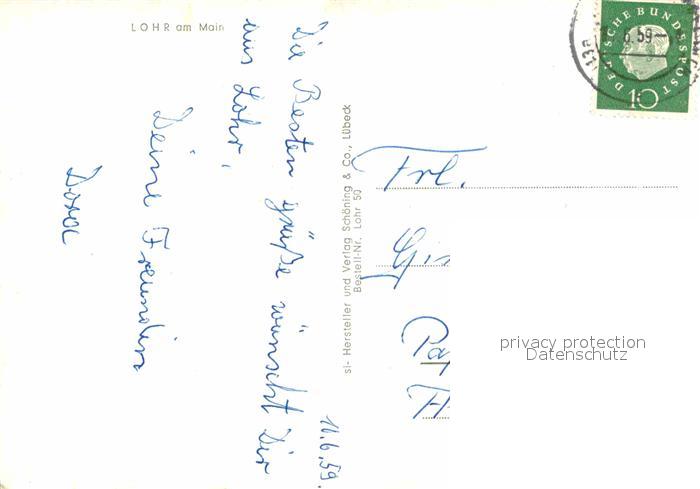 LOHR am Main
Die Besten grüße wünscht Dir
aus Lohr,
Deine Freundin
Dora
11.6.59.
si- Hersteller und Verlag Schöning & Co., Lübeck
Bestell-Nr. Lohr 50
DEUTSCHE BUNDESPOST
10
6.59-
Frl.
privacy protection
Datenschutz